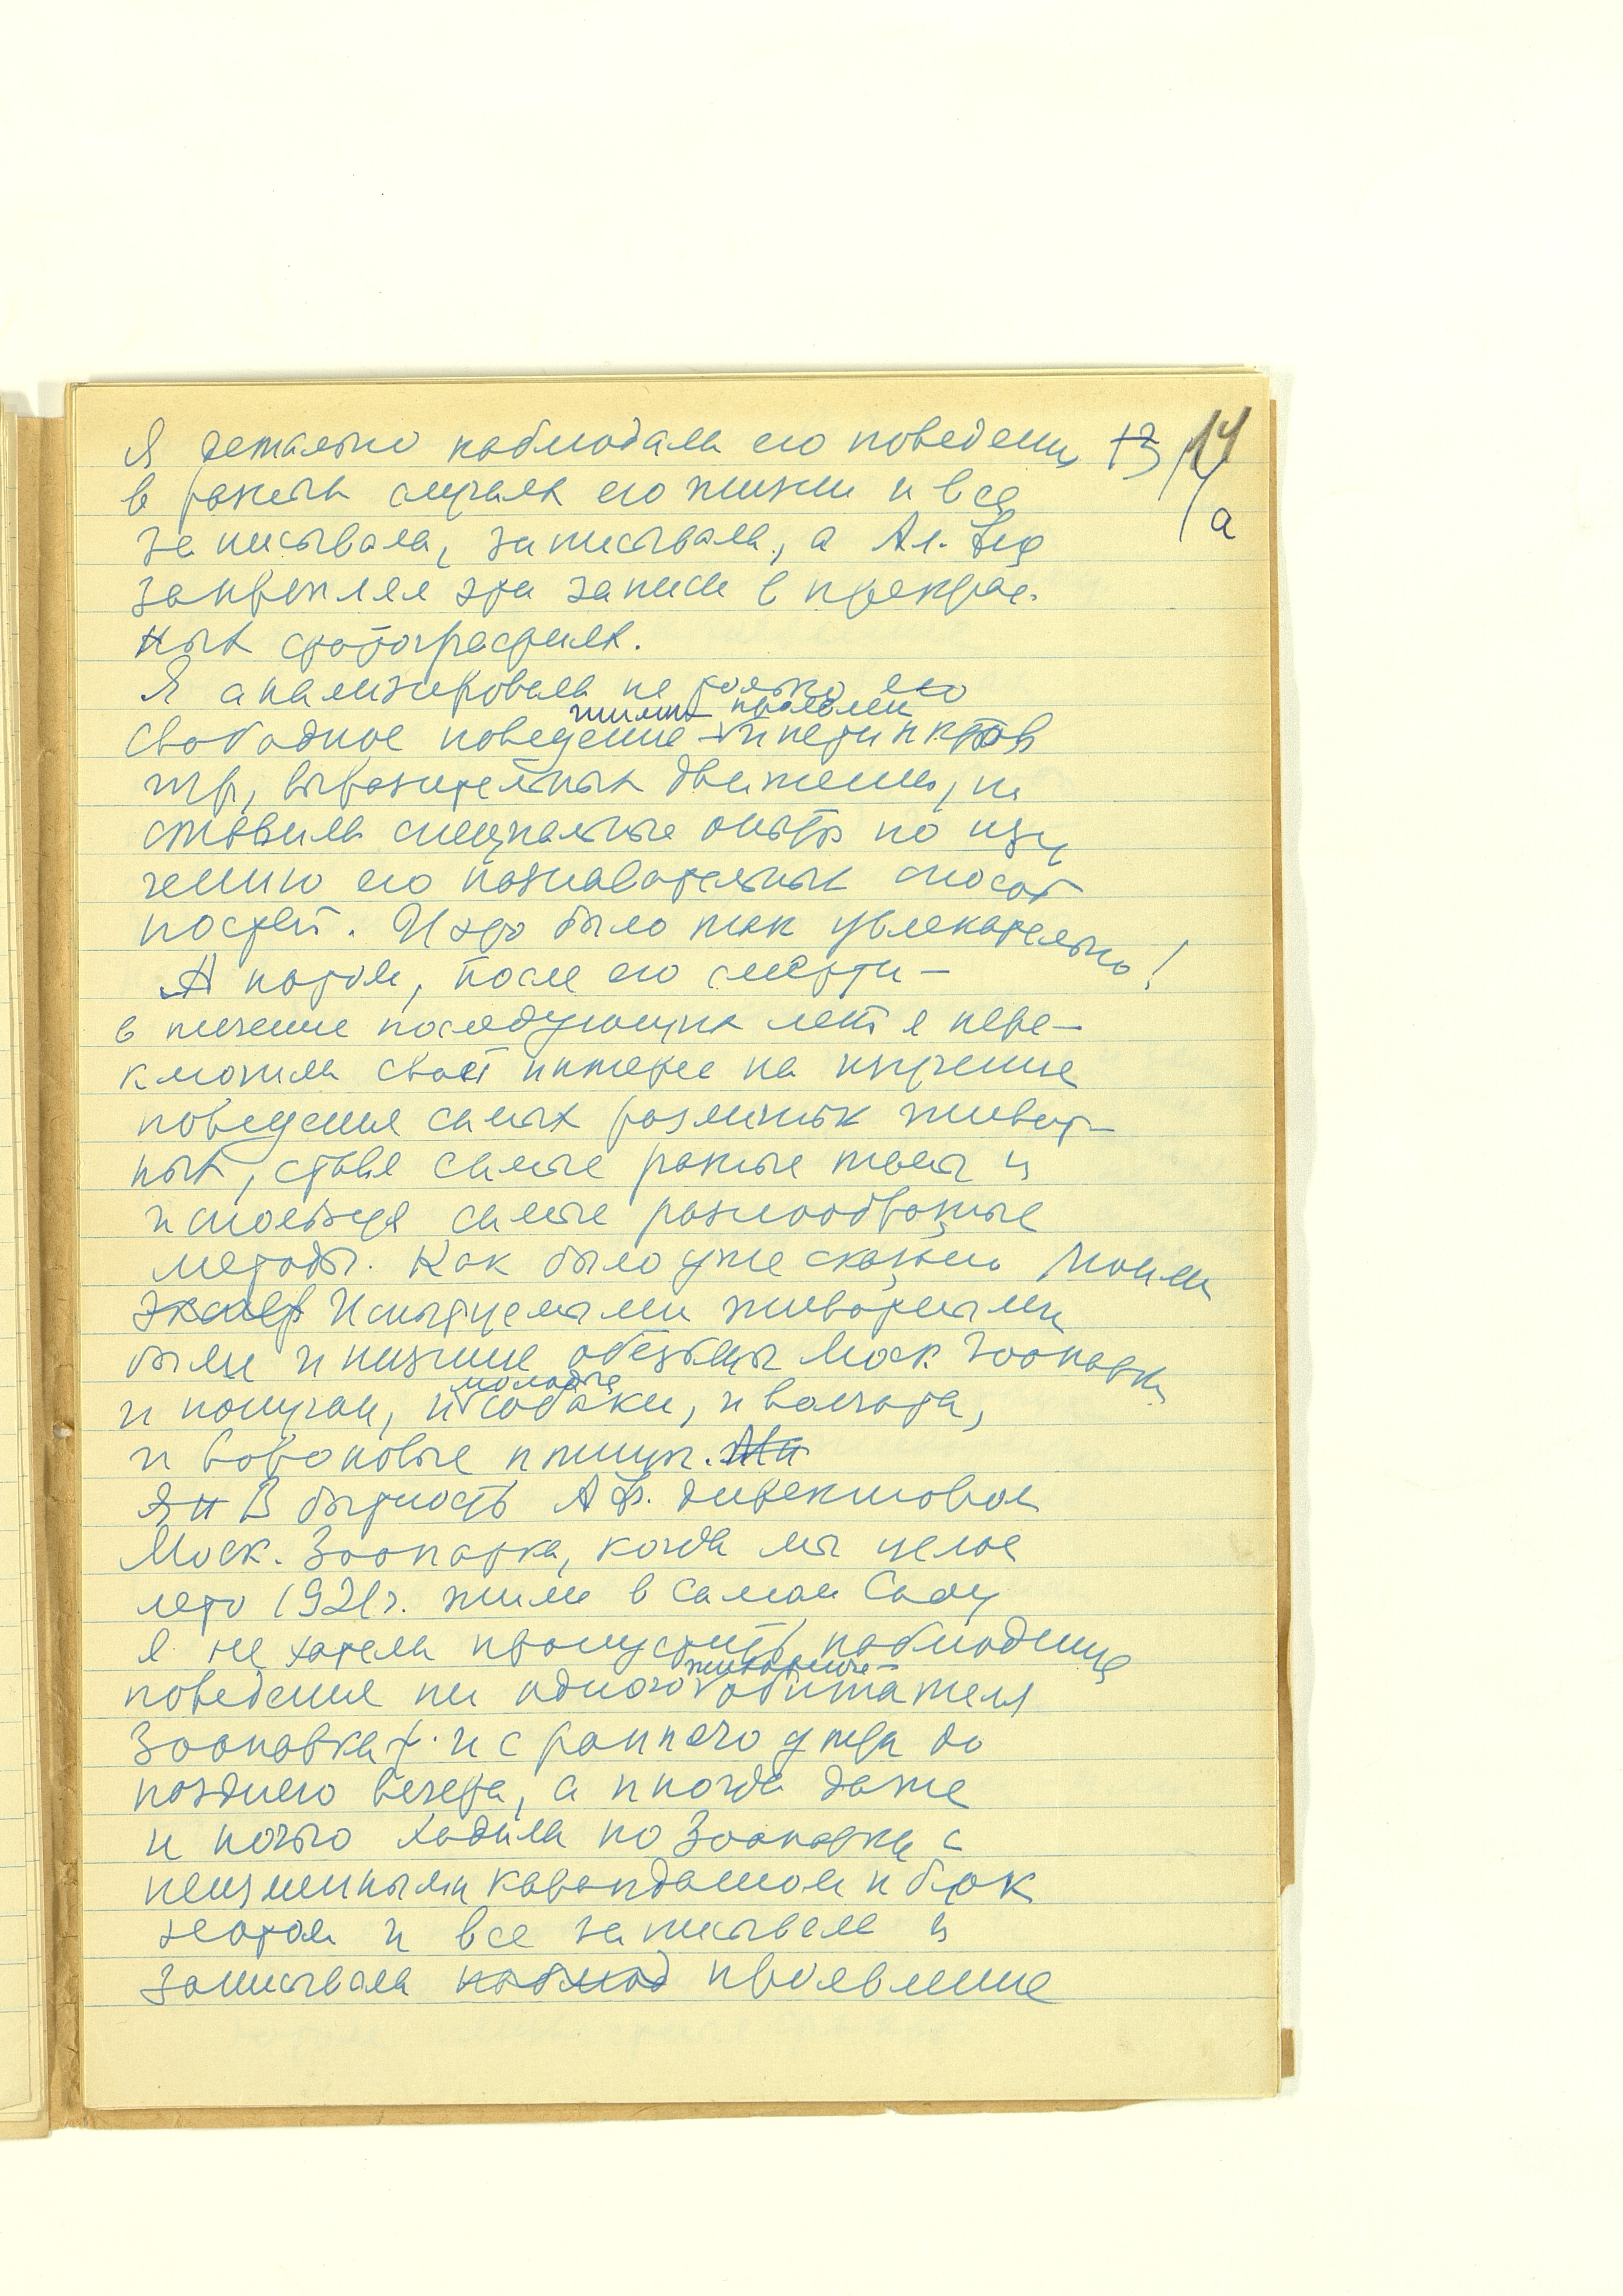 Я детально наблюдала его поведение 13 14
в разных случаях его жизни и все а
записывала, записывала, а Ал. Фед
закреплял эти записи в прекрас-
ных фотографиях.
Я анализировала не только его
свободное поведение проявлен инстинктов
игр, выразительных движений, но
ставила специальные опыты по изу
чению его познавательных способ
ностей. И это было так увлекательно!
А потом, после его смерти –
в течение последующих лет я пере–
ключила свой интерес на изучение
поведения самых различных живот–
ных, ставя самые разные темы и
используя самые разнообразные
методы. Как было уже сказано Моими
экспер Испытуемыми животными
были и низшие обезьяны Моск. Зоопарка
молодые
и попугаи, и собаки, и волчата,
и вороновые птицы.
Я н В бытность А Ф. директором
Моск. Зоопарка, когда мы целое
лето 1921г. жили в самом Саду
я не хотела пропустить наблюдение
поведения ни одного обитателя
Зоопарка и с раннего утра до
позднего вечера, а иногда даже
и ночью ходила по Зоопарку с
неизменным карандашом и блок
нотом и все записывала и
записывала наблюд проявление